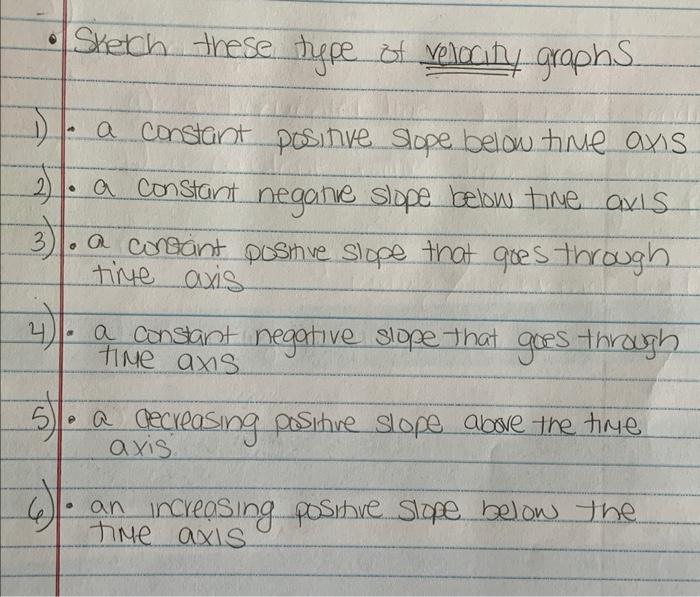 • Sketch these type of velocity graphs
1) • a constant positive slope below time axis
2) • a constant negative slope below time axis
3) • a constant positive slope that goes through
time axis
4) • a constant negative slope that goes through
time axis
5) • a decreasing positive slope above the time
axis
6) • an increasing positive slope below the
time axis